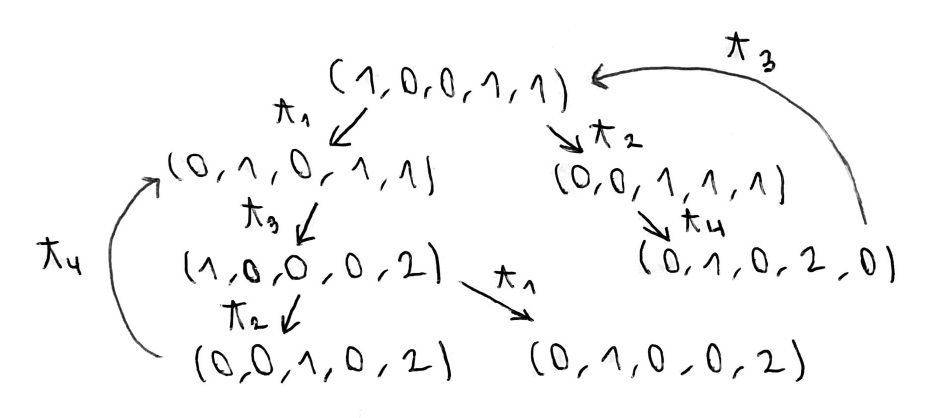 π3
(1,0,0,1,1)
π1 π2
(0,1,0,1,1) (0,0,1,1,1)
π3 π4
π4 (1,0,0,0,2) (0,1,0,2,0)
π2 π1
(0,0,1,0,2) (0,1,0,0,2)